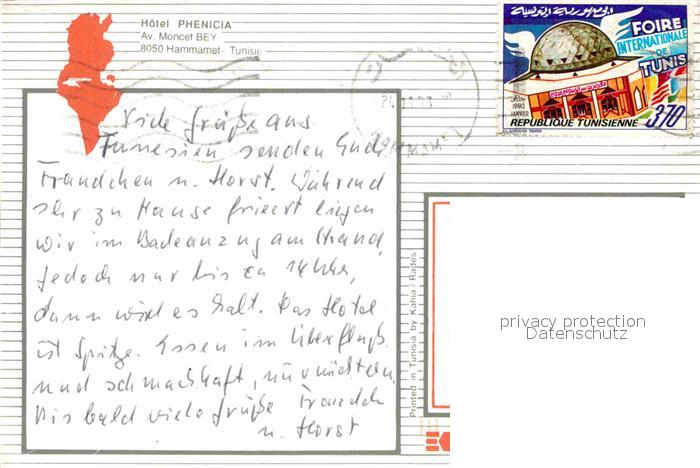 Hôtel PHENICIA
Av. Moncet BEY
8050 Hammamet - Tunisie
الجمهورية التونسية
FOIRE
INTERNATIONALE
DE
TUNIS
1990
JANVIER
370
REPUBLIQUE TUNISIENNE
Viele Grüße aus
Tunesien senden Euch
Traudchen u. Horst. Während
Ihr zu Hause friert liegen
wir im Badeanzug am Strand,
jedoch nur bis 14 Uhr,
dann wird es kalt. Das Hotel
ist Spitze. Essen im Überfluß
und schmackhaft, nur
Bis bald viele Grüße
u. Horst
Printed in Tunisia by Kahia / Rades
privacy protection
Datenschutz